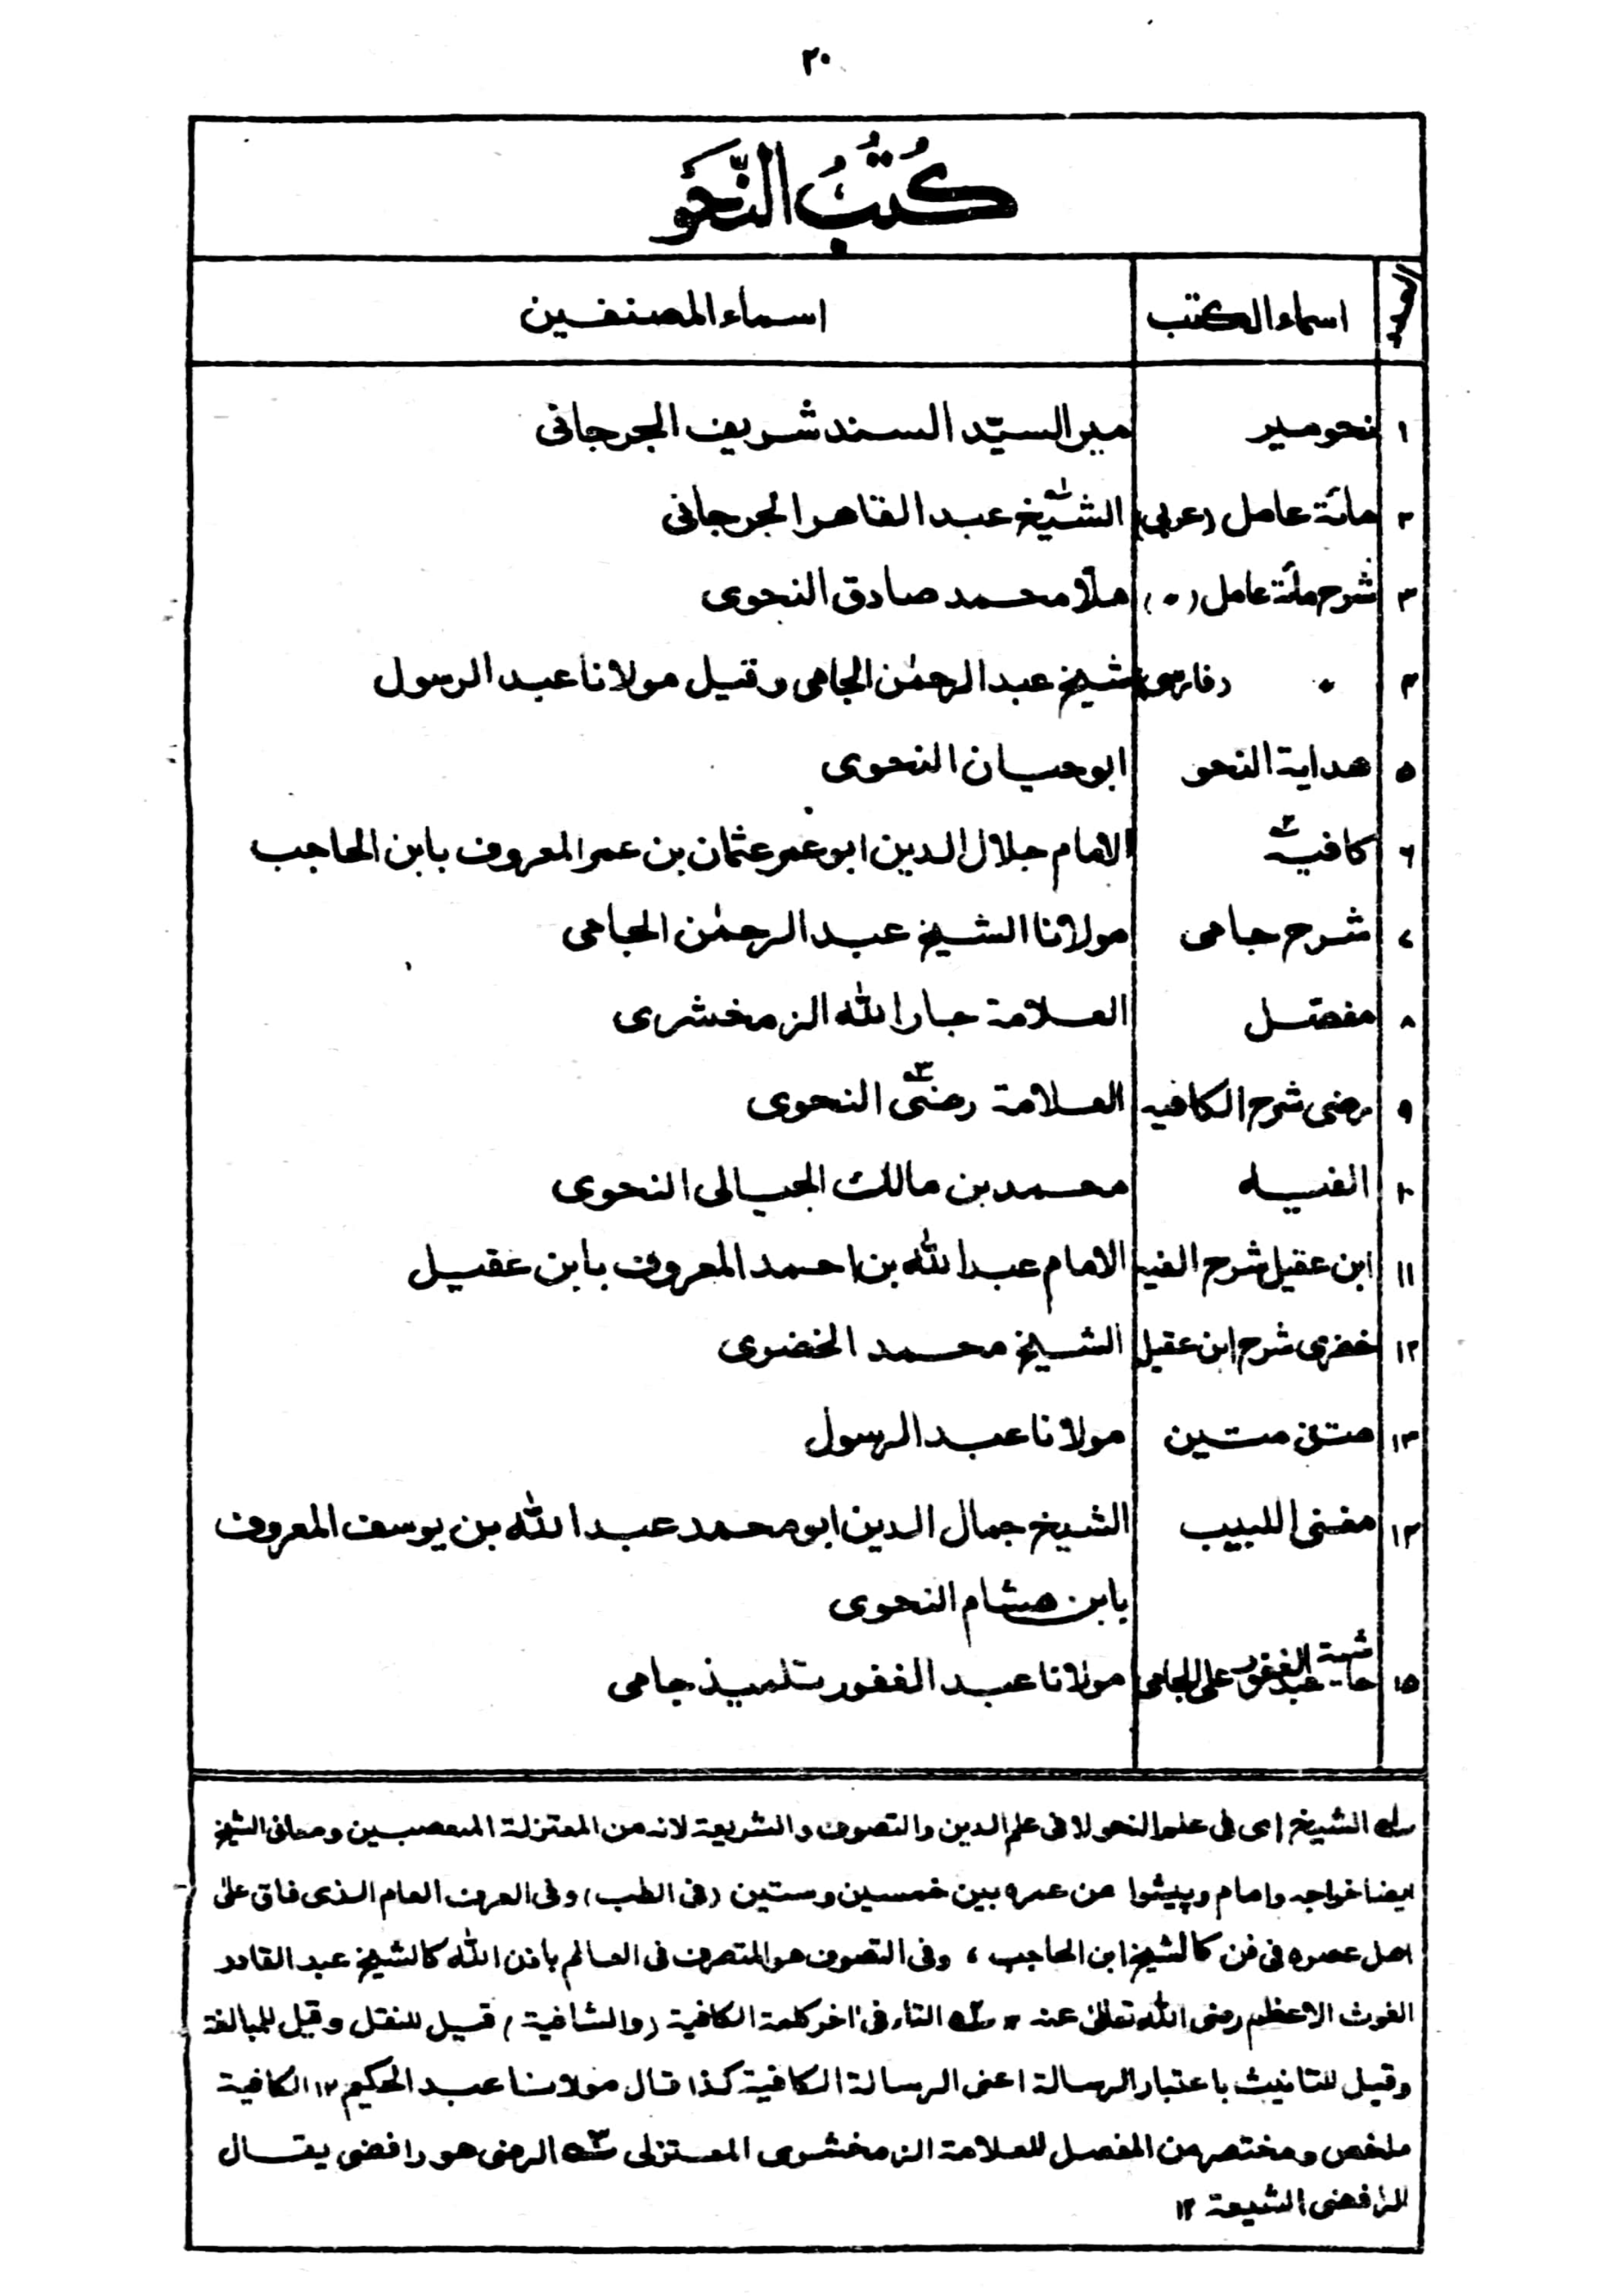 ٢٠
كُتُبُ النَّحَو
العدد اسماء الكتب اسماء المصنفين
١ نحو مير مير السيّد السند شريف الجرجانى
٢ مائة عامل (عربى) الشيخ١ عبد القاهر الجرجانى
٣ شرح مائة عامل (〃) ملّا محمد صادق النحوى
٤ 〃 (فارسى) شيخ عبد الرحمٰن الجامى وقيل مولانا عبد الرسول
٥ هداية النحو ابو حيان النحوى
٦ كافية٢ الامام جلال الدين ابو عمر عثمان بن عمر المعروف بابن الحاجب
٧ شرح جامى مولانا الشيخ عبد الرحمٰن الجامى
٨ مفصّل العلامة جار الله الزمخشرى
٩ رضى شرح الكافيه العلامة رضى٣ النحوى
١٠ الفيه محمد بن مالك الجيالى النحوى
١١ ابن عقيل شرح الفيه الامام عبد الله بن احمد المعروف بابن عقيل
١٢ خضرى شرح ابن عقيل الشيخ محمد الخضرى
١٣ متن متين مولانا عبد الرسول
١٤ مغنى اللبيب الشيخ جمال الدين ابو محمد عبد الله بن يوسف المعروف
بابن هشام النحوى
١٥ حاشية عبد الغفور على الجامى مولانا عبد الغفور تلميذ جامى
١ الشيخ اى فى علم النحو لا فى علم الدين والتصوف والشريعة لانه من المعتزلة المتعصبين ومعانى الشيخ
ايضا خواجه وامام وپيشوا من عمره بين خمسين وستين (فى الطب) وفى العرف العام الذى فاق على
اهل عصره فى فن كالشيخ ابن الحاجب ، وفى التصوف هو المتصرف فى العالم باذن الله كالشيخ عبد القادر
الغوث الاعظم رضى الله تعالىٰ عنه ١٢ ٢ التاء فى اٰخر كلمة الكافية (والشافية) قيل للنقل وقيل للمبالغة
وقيل للتانيث باعتبار الرسالة اعنى الرسالة الكافية كذا قال مولانا عبد الحكيم ١٢ الكافية
ملخص ومختصر من المفصل للعلامة الزمخشرى المعتزلى ٣ الرضى هو رافضى يقال
الرافضى الشيعة ١٢